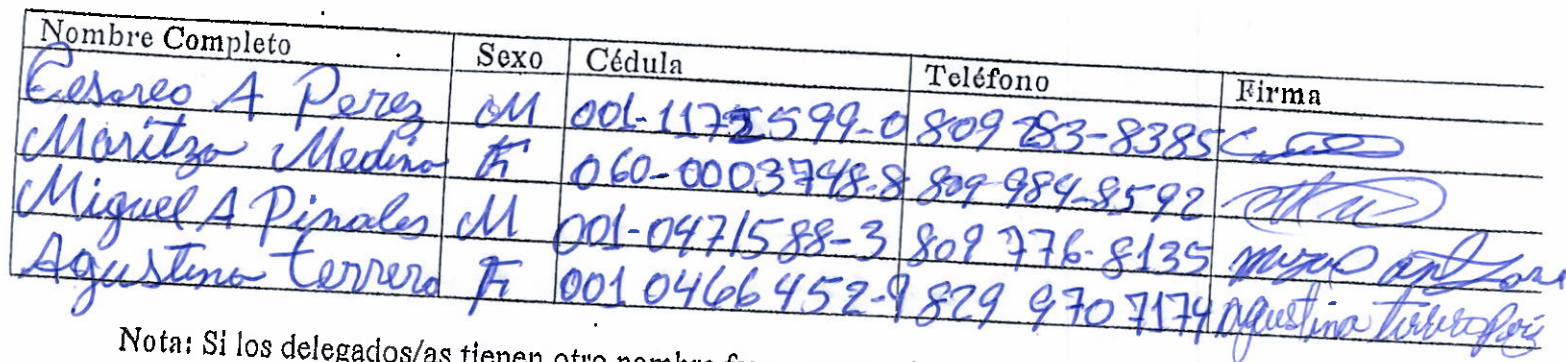 Nombre Completo Sexo Cédula Teléfono Firma
Cesareo A Perez M 001-1172599-0 809 283-8385
Maritza Medina F 060-0003748-8 809-984-8592
Miguel A Pinales M 001-0471588-3 809 776-8135
Agustina terrero F 001 0466452-9 829 970 7174 agustina
Nota: Si los delegados/as tienen otro nombre